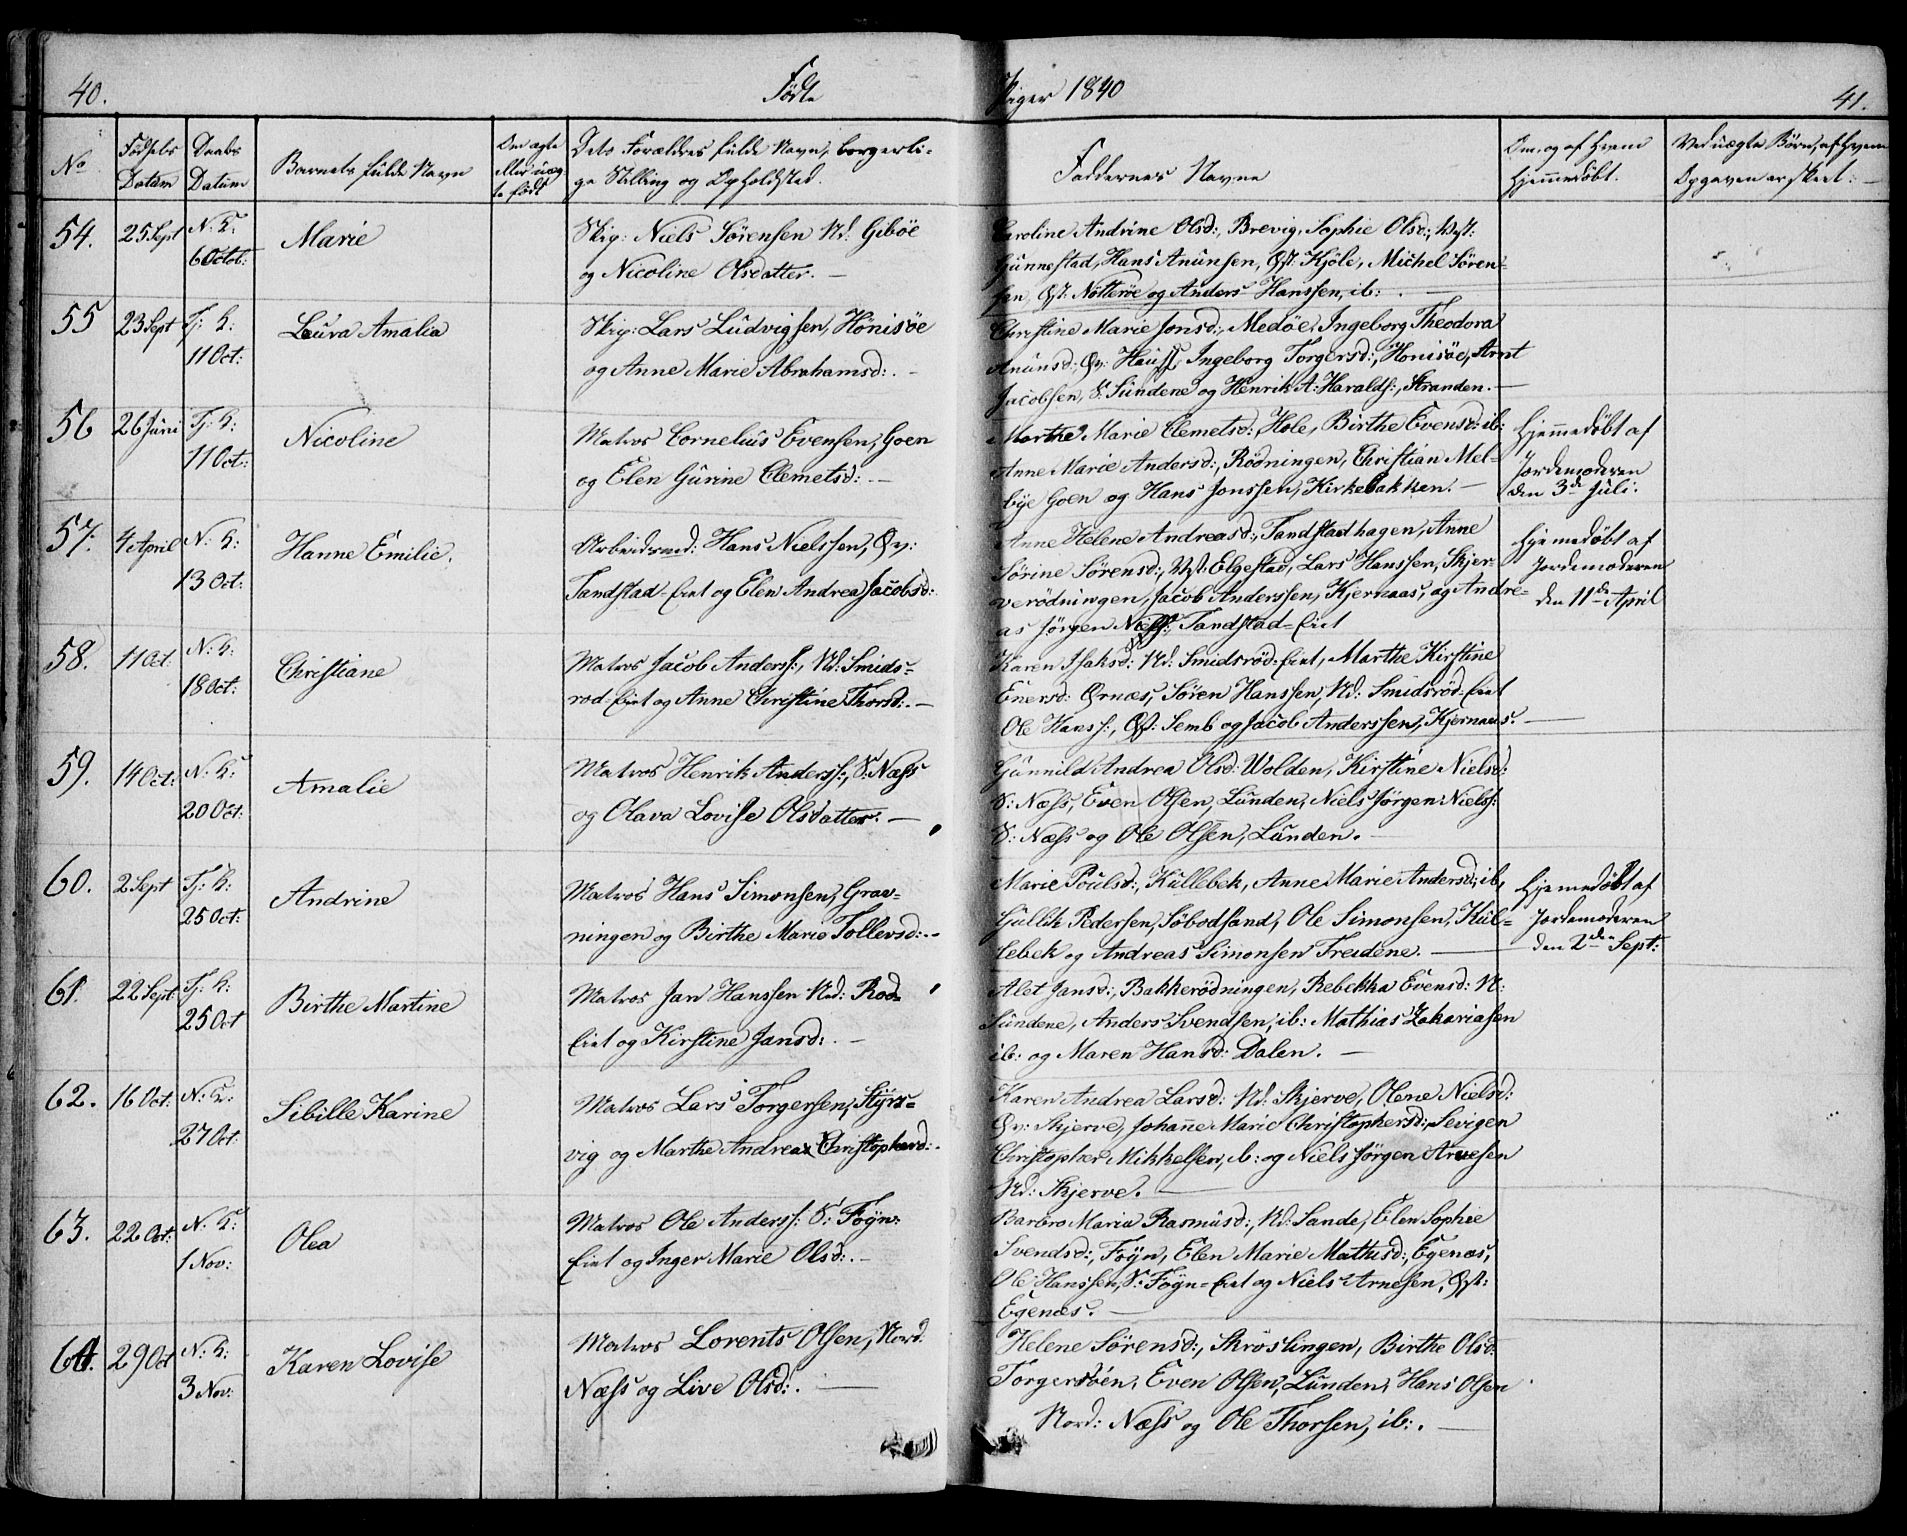 40. Fødte
Piger 1840 41.
No
Fødsels Datum
Daabs Datum
Barnets fulde Navn
Om ægte eller uægte født
Dets Forældres fulde Navn, borgerlige Stilling og Opholdsted.
Faddernes Navne
Om, og af Hvem Hjemmedøbt.
Ved uægte Børn, af Hvem Opgaven er skeet:
54. 25 Sept N: K: 6 Octob: Marie
Skip: Niels Sørensen Nd: Gibøe
og Nicoline Olsdatter. —
Caroline Andrine Olsd:, Brevig, Sophie Olsd:, Vest:
Gunnestad, Hans Anunsen, Øst: Kjøle, Michel Søren-
sen, Øst: Nøtterøe og Anders Hanssen, ib: . —
55 23 Sept Tj: K: 11 Oct: Laura Amalia
Skip: Lars Ludvigsen, Hønisøe
og Anne Marie Abrahamsd: . —
Christine Marie Jonsd:, Medøe, Ingeborg Theodora
Anunsd:, Øv: Ingeborg Torgersd:, Honisøe, Arnt
Jacobsen, S: Sundene og Henrik A: Haralds:, Stranden. —
56 26 Juni Tj: K: 11 Oct: Nicoline
Matros Cornelius Evensen, Goen
og Elen Gurine Clemetsd: . —
Marthe Marie Clemetsd:, Hole, Birthe Evensd: ib:
Anne Marie Andersd:, Rødningen, Christian Mel-
bye Goen og Hans Jonssen, Kirkebakken. —
Hjemmedøbt af
Jordemoderen
den 3de Juli.
57. 4 April N: K: 13 Oct: Hanne Emilie.
Arbeidsmd: Hans Nielssen, Øv:
Tandstad-Eiet og Elen Andrea Jacobsd:
Anne Helene Andreasd:, Tandstadhagen, Anne
Sørine Sørensd:, Vest: Elgestad, Lars Hanssen, Skjer-
verødningen, Jacob Anderssen, Kjernaas, og Andre-
as Jørgen Nielss:, Tandstad-Eiet
Hjemedøbt af
Jordemoderen
den 11de April
58. 11 Oct: N: K: 18 Oct: Christiane
Matros Jacob Anderss:, Nd: Smids-
rød-Eiet og Anne Christine Thorsd: . —
Karen Isaksd: Nd: Smidsrød-Eiet, Marthe Kirstine
Enersd: Ørnes, Søren Hanssen, Nd: Smidsrød-Eiet
Ole Hanss:, Øst: Semb og Jacob Anderssen, Kjernaas. —
59. 14 Oct: N: K: 20 Oct: Amalie
Matros Henrik Anderss:, S: Næss
og Olava Lovise Olsdatter. —
Gunnild Andrea Olsd: Wolden, Kirstine Nielsd:
S: Næss, Even Olsen, Lunden, Niels Jørgen Nielss:
S: Næss og Ole Olsen, Lunden. —
60. 2 Sept Tj: K: 25 Oct: Andrine
Matros Hans Simonsen, Grav-
ningen og Birthe Marie Tollevsd: . -
Marie Poulsd:, Kullebek, Anne Marie Andersd: ib,
Gullik Pedersen, Søbodsand, Ole Simonsen, Kul-
lebek og Andreas Simonsen Treidene. —
Hjemedøbt af
Jordemoderen
den 2den Sept:
61. 22 Sept: Tj: K: 25 Oct Birthe Martine
Matros Jan Hanssen Nd: Rød-
Eiet og Kirstine Jansd: . —
Alet Jansd:, Bakkerødningen, Rebekka Evensd: N:
Sundene, Anders Svendsen, ib: Mathias Zakariasen
ib: og Maren Hansd: Dalen. —
62. 16 Oct: N: K: 27 Oct: Sibille Karine
Matros Lars Torgersen, Styrs-
vig og Marthe Andrea Christophersd: .
Karen Andrea Larsd: Nd: Skjerve, Olene Nielsd:
Øv: Skjerve, Johane Marie Christophersd: Sevigen
Christopher Mikkelsen, ib: og Niels Jørgen Arvesen
Nd: Skjerve. —
63. 22 Oct: N: K: 1 Nov: Olea
Matros Ole Anderss: S: Føyn-
Eiet og Inger Marie Olsd: . —
Barbro Maria Rasmusd:, Nd: Sande, Elen Sophie
Svendsd:, Føyn, Elen Marie Mathisd:, Egenæs,
Ole Hanssen, S: Føyn-Eiet og Niels Arnesen, Øst:
Egenæs. —
64. 29 Oct N: K: 3 Nov: Karen Lovise
Matros Lorents Olsen, Nord:
Næss og Live Olsd: . —
Helene Sørensd:, Skrøslingen, Birthe Olsd:
Torgersøen, Even Olsen, Lunden, Hans Olsen
Nord: Næss og Ole Thorsen, ib: . —